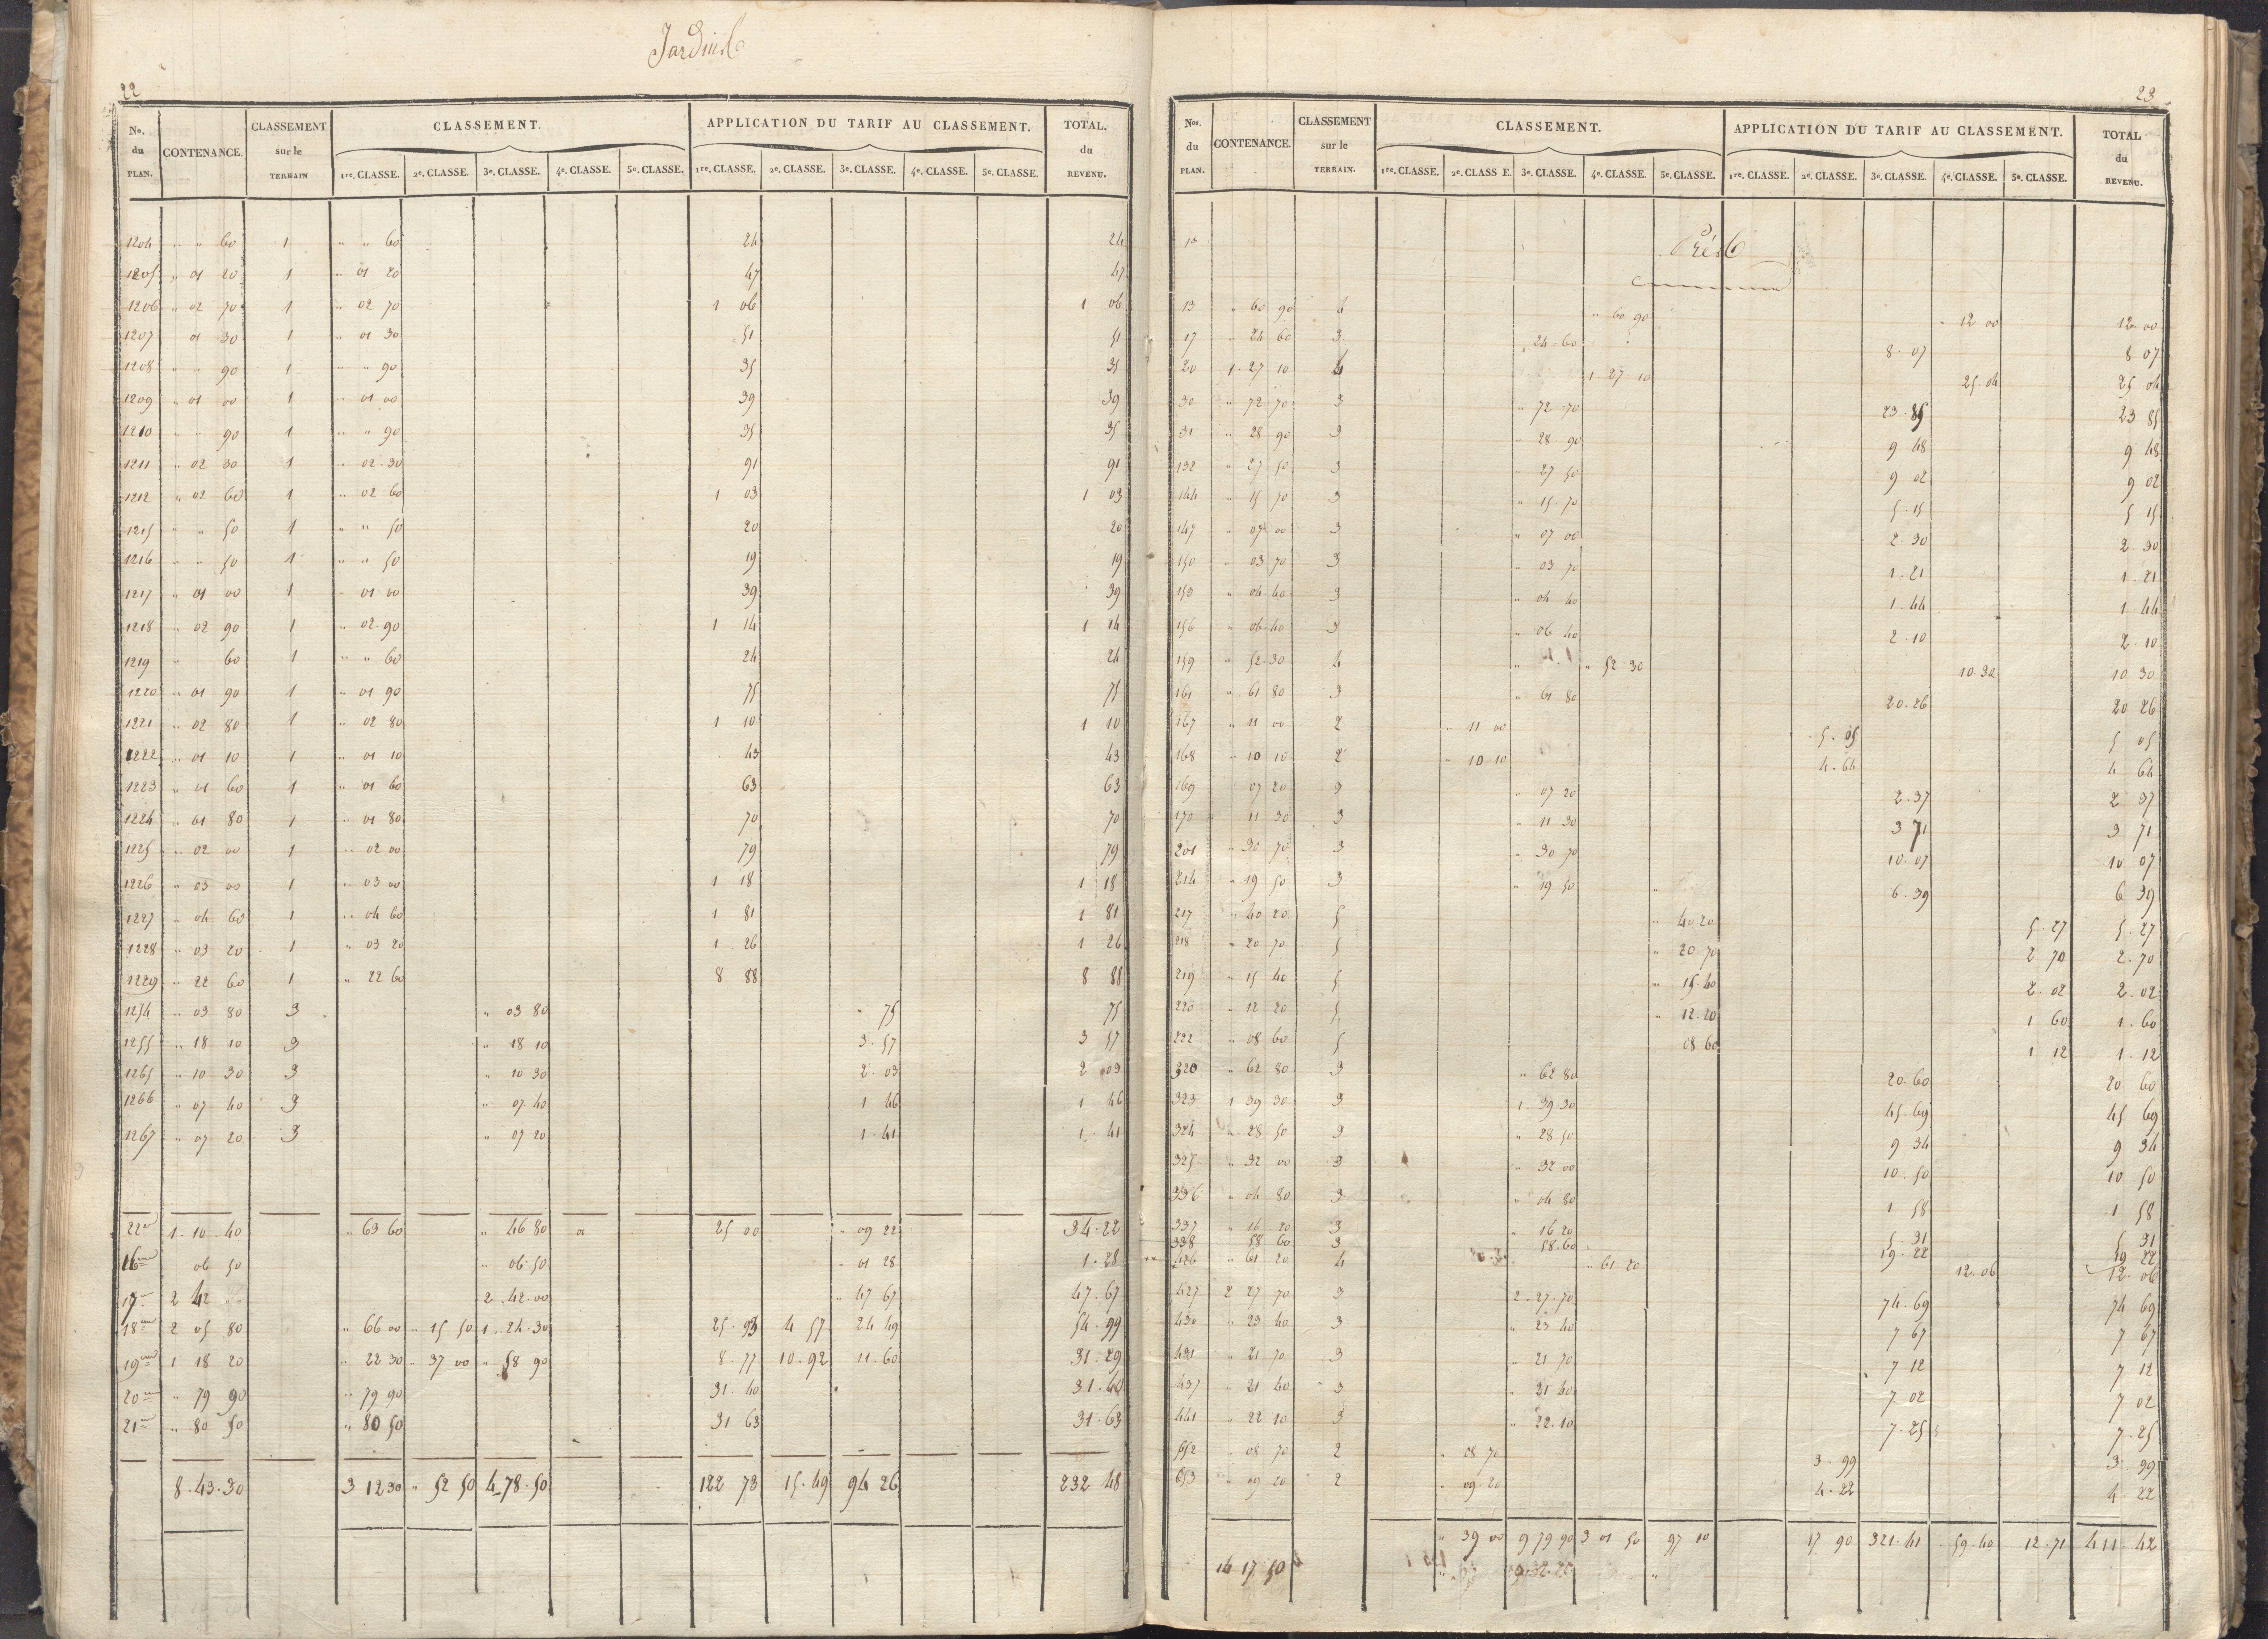 Jardins
22
No. du PLAN. CONTENANCE. CLASSEMENT sur le TERRAIN CLASSEMENT. APPLICATION DU TARIF AU CLASSEMENT. TOTAL. du REVENU.
1re. CLASSE. 2e. CLASSE. 3e. CLASSE. 4e. CLASSE. 5e. CLASSE. 1re. CLASSE. 2e. CLASSE. 3e. CLASSE. 4e. CLASSE. 5e. CLASSE.
1204 " " 60 1 " " 60 24 24
1205 " 01 20 1 " 01 20 47 47
1206 " 02 70 1 " 02 70 1 06 1 06
1207 01 30 1 " 01 30 51 51
1208 " " 90 1 " " 90 35 35
1209 " 01 00 1 " 01 00 39 39
1210 " " 90 1 " " 90 35 35
1211 " 02 30 1 " 02 30 91 91
1212 " 02 60 1 " 02 60 1 03 1 03
1215 " " 50 1 " " 50 20 20
1216 " " 50 1 " " 50 19 19
1217 " 01 00 1 " 01 00 39 39
1218 " 02 90 1 " 02 90 1 14 1 14
1219 " 60 1 " " 60 24 24
1220 " 01 90 1 " 01 90 75 75
1221 " 02 80 1 " 02 80 1 10 1 10
1222 " 01 10 1 " 01 10 43 43
1223 " 01 60 1 " 01 60 63 63
1224 " 01 80 1 " 01 80 70 70
1225 " 02 00 1 " 02 00 79 79
1226 " 03 00 1 " 03 00 1 18 1 18
1227 " 04 60 1 " 04 60 1 81 1 81
1228 " 03 20 1 " 03 20 1 26 1 26
1229 " 22 60 1 " 22 60 8 88 8 88
1254 " 03 80 3 " 03 80 " 75 75
1255 " 18 10 3 " 18 10 3 57 3 57
1265 " 10 30 3 " 10 30 2 03 2 03
1266 " 07 40 3 " 07 40 1 46 1 46
1267 " 07 20 3 " 07 20 1 41 1 41
22 1 10 40 " 63 60 " 46 80 25 00 " 09 22 34 22
16 06 50 " 06 50 " 01 28 1 28
17 2 42 " " 2 42 00 " 47 67 47 67
18 2 05 80 " 66 00 " 15 50 1 24 30 25 93 4 57 24 49 54 99
19 1 18 20 " 22 30 " 37 00 " 58 90 8 77 10 92 11 60 31 29
20 " 79 90 " 79 90 31 40 31 40
21 " 80 50 " 80 50 31 63 31 63
8 43 30 3 12 30 " 52 50 4 78 50 122 73 15 49 94 26 232 48
23
Nos. du PLAN. CONTENANCE. CLASSEMENT sur le TERRAIN. CLASSEMENT. APPLICATION DU TARIF AU CLASSEMENT. TOTAL du REVENU.
1re. CLASSE. 2e. CLASSE. 3e. CLASSE. 4e. CLASSE. 5e. CLASSE. 1re. CLASSE. 2e. CLASSE. 3e. CLASSE. 4e. CLASSE. 5e. CLASSE.
Prés
13 " 60 90 4 " 60 90 " 12 00 12 00
17 " 24 60 3 " 24 60 8 07 8 07
20 1 27 10 4 1 27 10 25 04 25 04
30 " 72 70 3 " 72 70 23 85 23 85
31 " 28 90 3 " 28 90 9 48 9 48
132 " 27 50 3 " 27 50 9 02 9 02
144 " 15 70 3 " 15 70 5 15 5 15
147 " 07 00 3 " 07 00 2 30 2 30
150 " 03 70 3 " 03 70 1 21 1 21
153 " 04 40 3 " 04 40 1 44 1 44
156 " 06 40 3 " 06 40 2 10 2 10
159 " 52 30 4 " 52 30 10 30 10 30
161 " 61 80 3 " 61 80 20 26 20 26
167 " 11 00 2 " 11 00 5 05 5 05
168 " 10 10 2 " 10 10 4 64 4 64
169 07 20 3 " 07 20 2 37 2 37
170 11 30 3 " 11 30 3 71 3 71
201 " 30 70 3 " 30 70 10 07 10 07
214 " 19 50 3 " 19 50 6 39 6 39
217 " 40 20 5 " 40 20 5 27 5 27
218 " 20 70 5 " 20 70 2 70 2 70
219 " 15 40 5 " 15 40 2 02 2 02
220 " 12 20 5 " 12 20 1 60 1 60
222 " 08 60 5 08 60 1 12 1 12
320 " 62 80 3 " 62 80 20 60 20 60
323 1 39 30 3 1 39 30 45 69 45 69
324 " 28 50 3 " 28 50 9 34 9 34
325 " 32 00 3 " 32 00 10 50 10 50
336 " 04 80 3 " 04 80 1 58 1 58
337 " 16 20 3 " 16 20 5 31 5 31
338 " 58 60 3 58 60 19 22 19 22
426 " 61 20 4 " 61 20 12 06 12 06
427 2 27 70 3 2 27 70 74 69 74 69
430 " 23 40 3 " 23 40 7 67 7 67
431 " 21 70 3 " 21 70 7 12 7 12
437 " 21 40 3 " 21 40 7 02 7 02
441 " 22 10 3 " 22 10 7 25 7 25
652 " 08 70 2 " 08 70 3 99 3 99
653 " 09 20 2 " 09 20 4 22 4 22
" 39 00 9 79 90 3 01 50 97 10 17 90 321 41 59 40 12 71 411 42
14 17 50